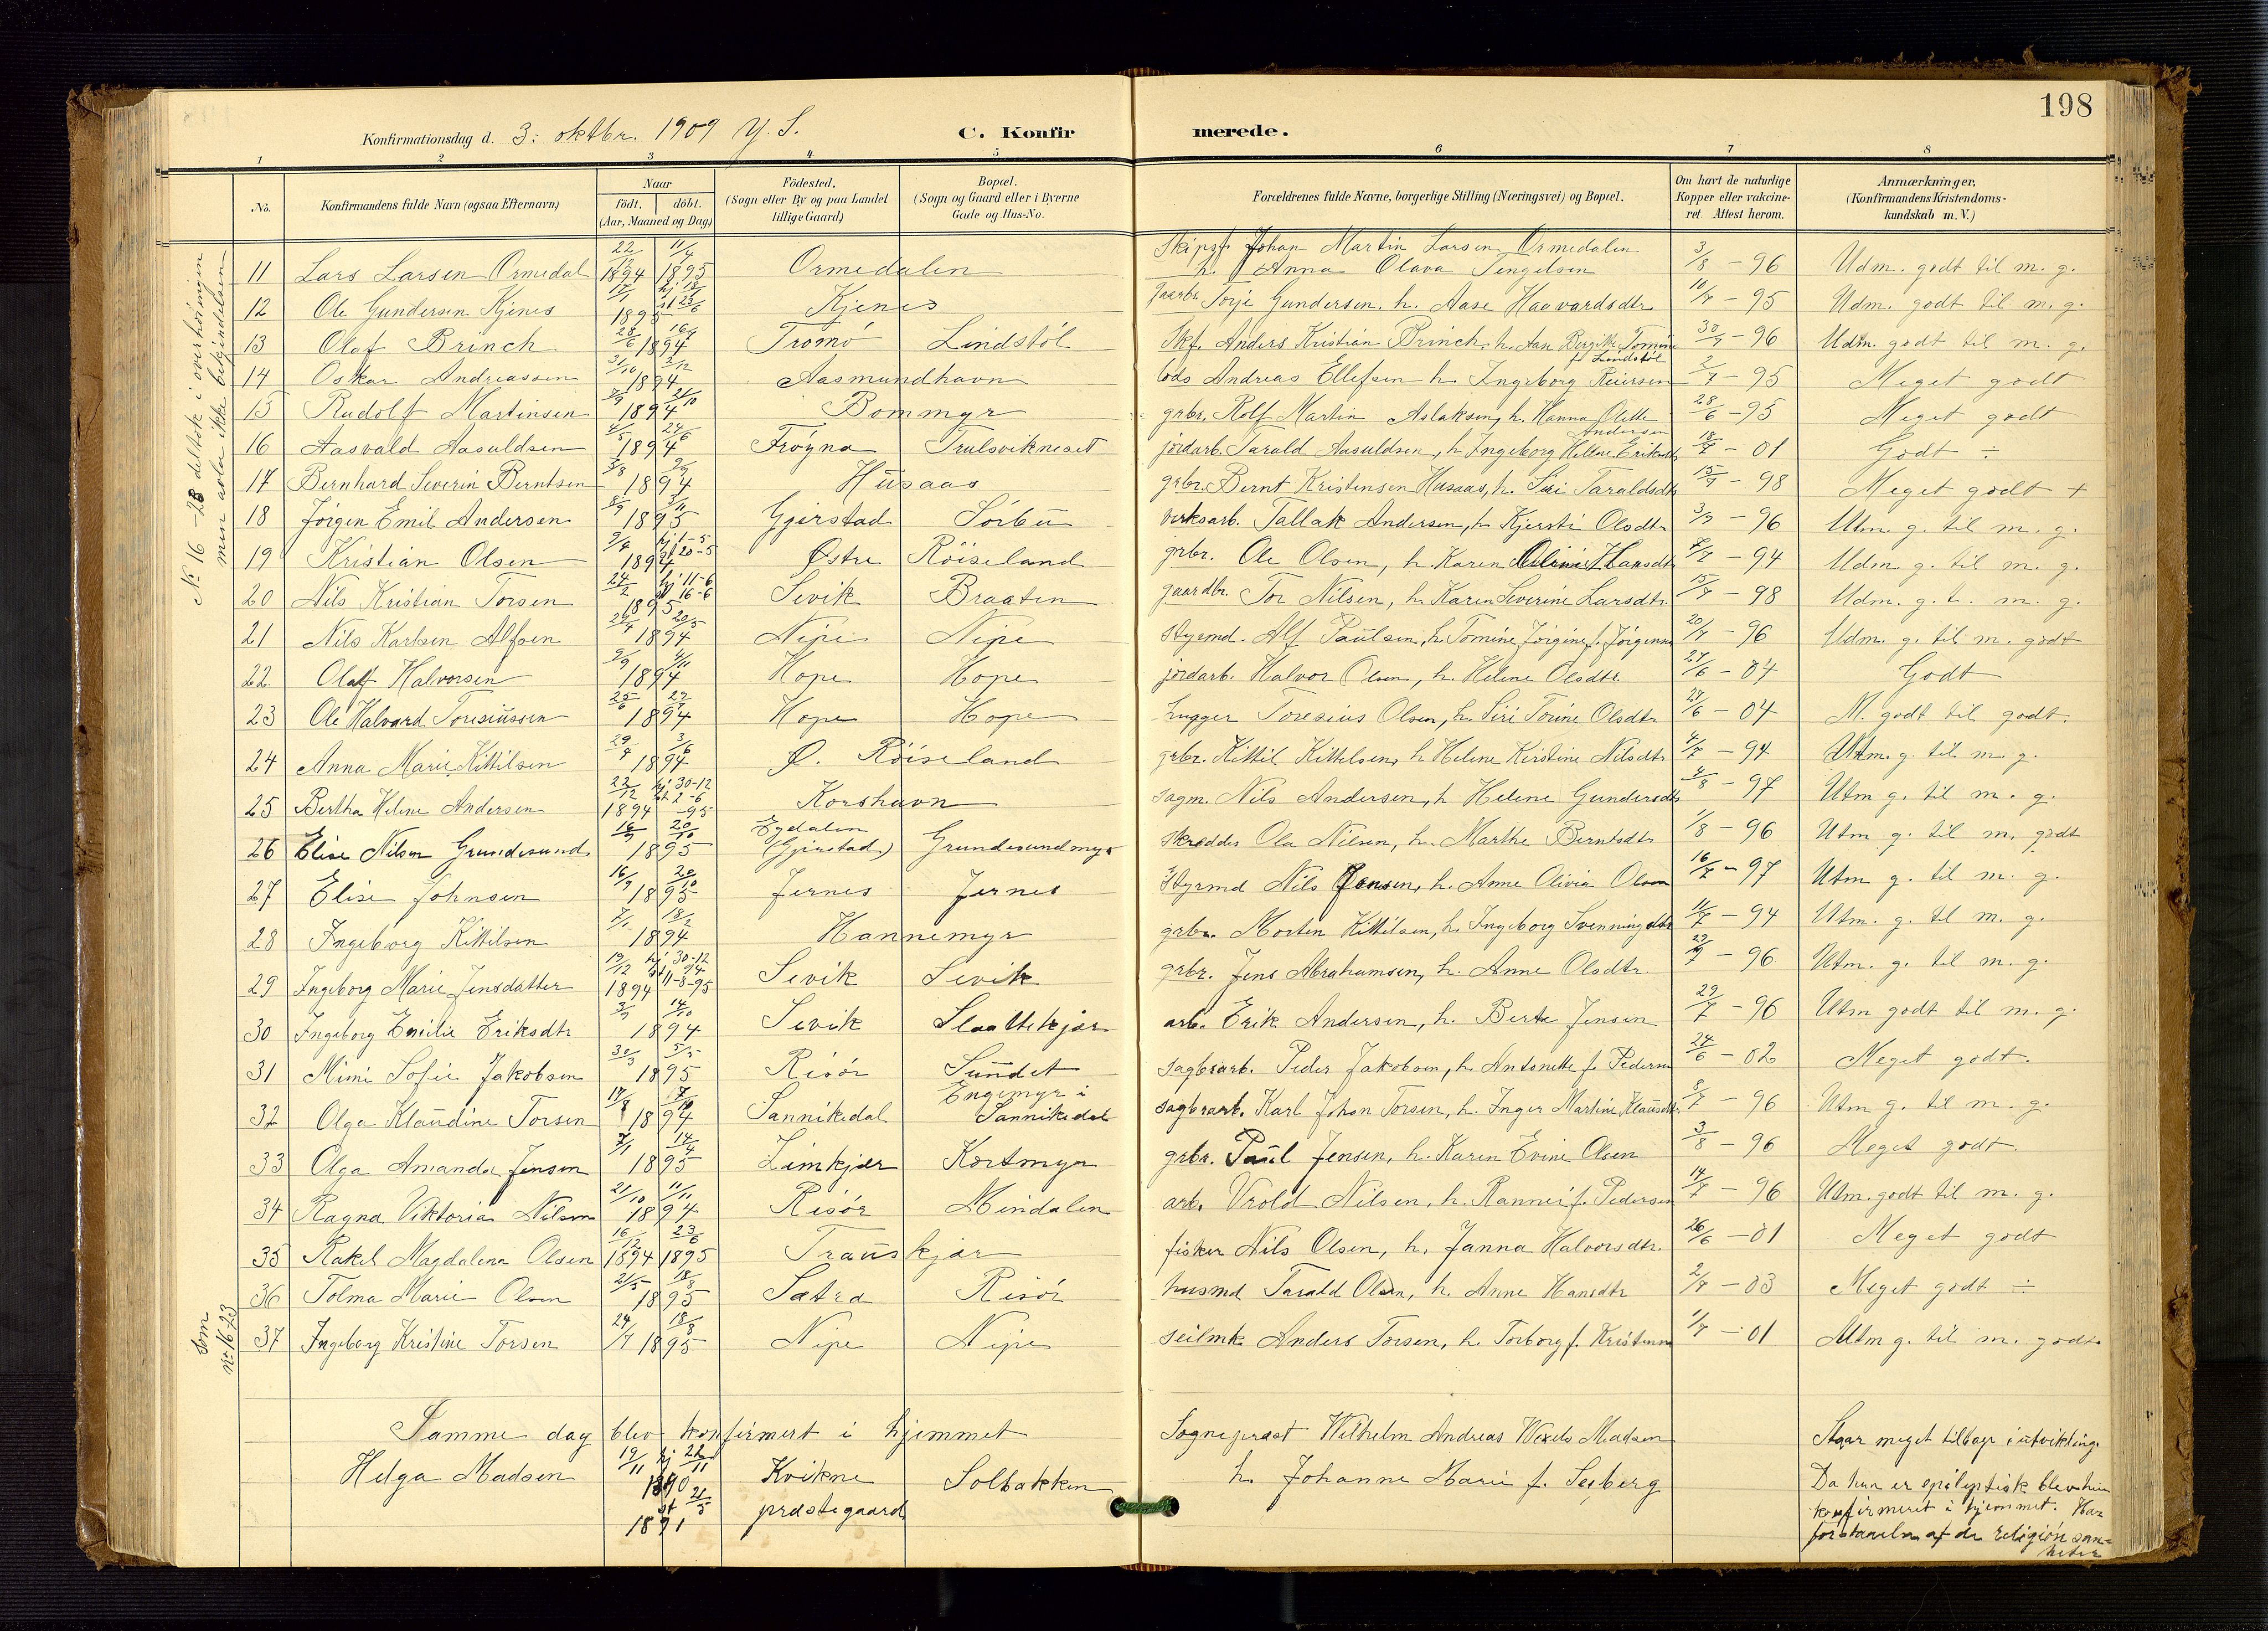 198
Konfirmationsdag d. 3. oktbr. 1909 Y. S.
C. Konfirmerede.
1 2 3 4 5 6 7 8
No.
Konfirmandens fulde Navn (ogsaa Efternavn)
Naar
födt. döbt.
(Aar, Maaned og Dag)
Födested.
(Sogn eller By og paa Landet
tillige Gaard)
Bopæl.
(Sogn og Gaard eller i Byerne
Gade og Hus-No.
Forældrenes fulde Navne, borgerlige Stilling (Næringsvei) og Bopæl.
Om havt de naturlige
Kopper eller vakcine-
ret Attest herom.
Anmærkninger.
(Konfirmandens Kristendoms-
kundskab m. V.)
No 16-28 deltok i overhøringen
men avla ikke bekjendelsen
11 Lars Larsen Ormedal 22/12 1894 11/4 1895 Ormedalen Skipsf. Johan Martin Larsen Ormedalen h. Anna Olava Tengelsen 3/8 - 96 Udm. godt til m. g.
12 Ole Gundersen Kjenes 1895 Kjenes Gaarbr. Torje Gundersen, h. Aase Haavardsdtr. 10/7 - 95 Udm. godt til m. g.
13 Olaf Brinch 28/6 1894 Tromö Lindstöl Skf. Anders Kristian Brinch, h. Ann Birgitte Tomine f. Lindstöl 30/7 - 96 Udm. godt til m. g.
14 Oskar Andreassen 31/10 2/12 1894 Aasmundhavn lods Andreas Ellefsen h. Ingeborg Reiersen 2/7 - 95 Meget godt
15 Rudolf Martinsen 21/10 1894 Bommyr grbr. Rolf Martin Aslaksen, h. Hanna Olette Andersen 28/6 - 95 Meget godt
16 Aasvald Aasuldsen 4/5 24/6 1894 Fröyna Trulsvikneset jordarb. Tarald Aasuldsen, h. Ingeborg Helene Eriksdtr 18/7 - 01 Godt ÷
17 Bernhard Severin Berntsen 1894 Husaas grbr. Bernt Kristensen Husaas, h. Siri Taraldsdtr 15/7 - 98 Meget godt +
18 Jörgen Emil Andersen 1895 Gjerstad Sörbu verksarb. Tallak Andersen, h. Kjersti Olsdtr 3/9 - 96 Utm. g. til m. g.
19 Kristian Olsen hj 1-5 20-5 1894 Östre Röiseland grbr. Ole Olsen, h. Karen Oline Hansdtr 7/7 - 94 Udm. g. til m. g.
20 Nils Kristian Torsen 24/2 hj 11-6 st 16-6 1895 Sevik Braaten gaardbr. Tor Nilsen, h. Karen Severine Larsdtr. 15/7 - 98 Udm. g. t. m. g.
21 Nils Karlsen Alfsen 24/4 20/5 1894 Nipe Nipe Styrmd. Alf Paulsen, h. Tomine Jörgine f. Jörgensen 20/7 - 96 Udm. g. til m. godt
22 Olaf Halvorsen 9/9 4/11 1894 Hope Hope jordarb. Halvor Olsen, h. Helene Olsdtr. 27/6 - 04 Godt
23 Ole Halvard Toresiussen 25/6 29/7 1894 Hope Hope hugger Toresius Olsen, h. Siri Torine Olsdtr 27/6 - 04 M. godt til godt.
24 Anna Marie Kittilsen 29/4 3/6 1894 Ø. Röiseland grbr. Kittil Kittelsen, h. Helene Kirstine Nilsdtr 4/7 - 94 Utm. g. til m. g.
25 Bertha Helene Andersen 22/12 1894 hj 30-12 st 2-6 -95 Korshavn sagm. Nils Andersen, h. Helene Gundersdtr 4/8 - 97 Utm g. til m. g.
26 Elise Nilsen Grundesund 16/9 20/10 1895 Eydalen (Gjerstad) Grundesundmyr skrædder Ola Nilsen, h. Marthe Berntsdtr 1/8 - 96 Utm g. til m. godt
27 Elise Johnsen 16/9 20/10 1895 Jernes Jernes Styrmd Nils Jonsen, h. Anne Olivia Olsen 16/7 - 97 Utm g. til m. g.
28 Ingeborg Kittilsen 7/1 18/2 1894 Hannemyr grbr. Morten Kittilsen, h. Ingeborg Svenningsdtr 11/7 - 94 Utm. g. til m. g.
29 Ingeborg Marie Jensdatter 19/12 1894 hj 30-12 94 st 11-8-95 Sevik Sevik grbr. Jens Abrahamsen, h. Anne Olsdtr. 29/7 - 96 Utm. g. til m. g.
30 Ingeborg Emilie Eriksdtr 3/9 14/10 1894 Sevik Slaattekjær arb. Erik Andersen, h. Berte Jensen 29/7 - 96 Utm godt til m. g.
31 Mimi Sofie Jakobsen 30/3 5/5 1895 Risör Sundet sagbrarb. Peder Jakobsen, h. Antonette f. Pedersen 24/6 - 02 Meget godt.
32 Olga Klaudine Torsen 7/10 1894 Sannikedal Engemyr i Sannikedal sagbrarb. Karl Johan Torsen, h. Inger Martine Klausdtr. 8/7 - 96 Utm g. til m. g.
33 Olga Amanda Jensen 7/1 14/4 1895 Limkjær Kortmyr grbr. Paul Jensen, h. Karen Evine Olsen 3/8 - 96 Meget godt.
34 Ragna Viktoria Nilsen 21/10 11/11 1894 Risör Mindalen arb. Vrold Nilsen, h. Rannei f. Pedersen 14/7 - 96 Utm. godt til m. g.
35 Rakel Magdalena Olsen 16/12 1894 23/6 1895 Trauskjær fisker Nils Olsen, h. Janna Halvorsdtr. 26/6 - 01 Meget godt
36 Tolma Marie Olsen 21/5 18/8 1895 Sætra Risör husmd Tarald Olsen, h. Anne Hansdtr 2/7 - 03 Meget godt ÷
Som
no 16-23
37 Ingeborg Kristine Torsen 24/7 18/8 1895 Nipe Nipe seilmk. Anders Torsen, h. Torborg f. Kristensen 1/7 - 01 Utm g. til m. godt.
Samme dag blev konfirmert i hjemmet
Helga Madsen 19/11 hj 22/11 1890 st 21/5 1891 Kvikne præstegaard Solbakken
Sogneprest Wilhelm Andreas Wexels Madsen
h. Johanne Marie f. Seyberg
Staar meget tilbage i utvikling.
Da hun er epileptisk blev hun
konfirmeret i hjemmet. Har
forstaaelse af de religiøn san-
heter